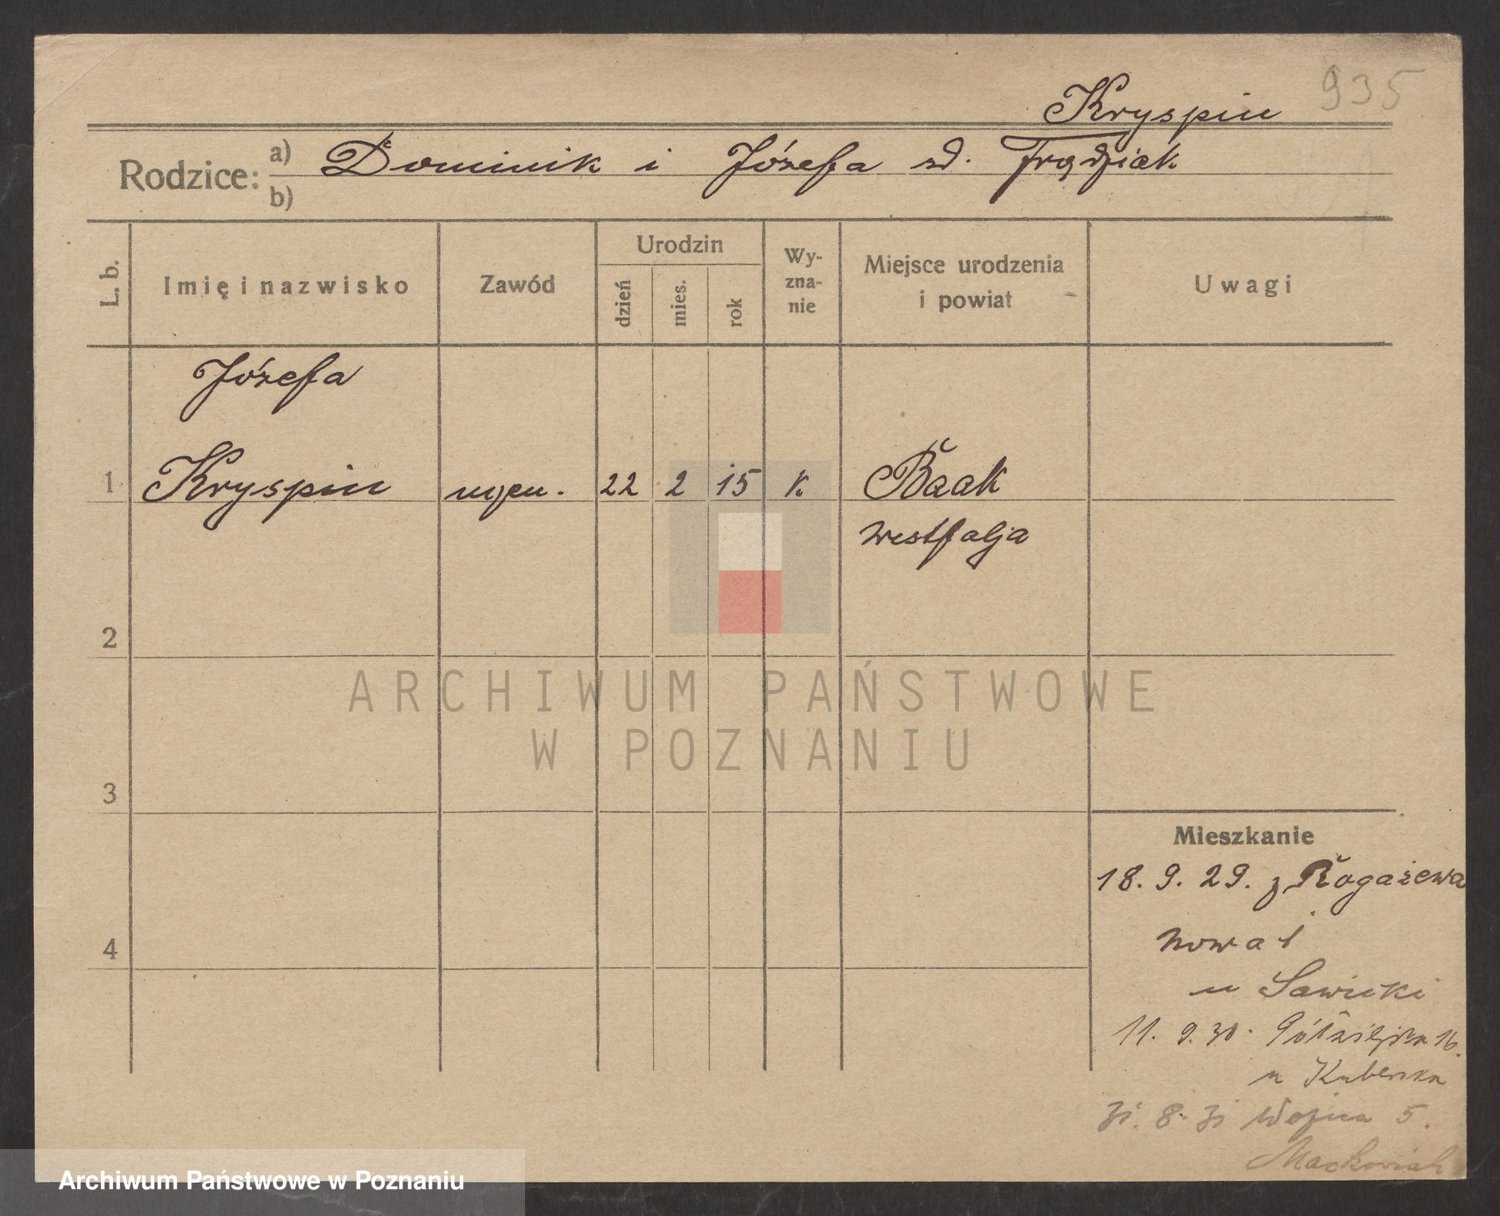 935
Kryspin
Rodzice: a) Dominik i Józefa zd. Frądziak
b)
L. b.
Imię i nazwisko
Zawód
Urodzin
dzień
mies.
rok
Wy-
zna-
nie
Miejsce urodzenia
i powiat
Uwagi
Józefa
1 Kryspin ucзen. 22 2 15 k. Baak
Westfalja
2
ARCHIWUM PAŃSTWOWE
W POZNANIU
3
4
Mieszkanie
18. 9. 29. z Rogażewa
Nowa 1
u Sawicki
11. 9. 30. 16.
u
31. 8. 31 5.
Maćkowiak
Archiwum Państwowe w Poznaniu